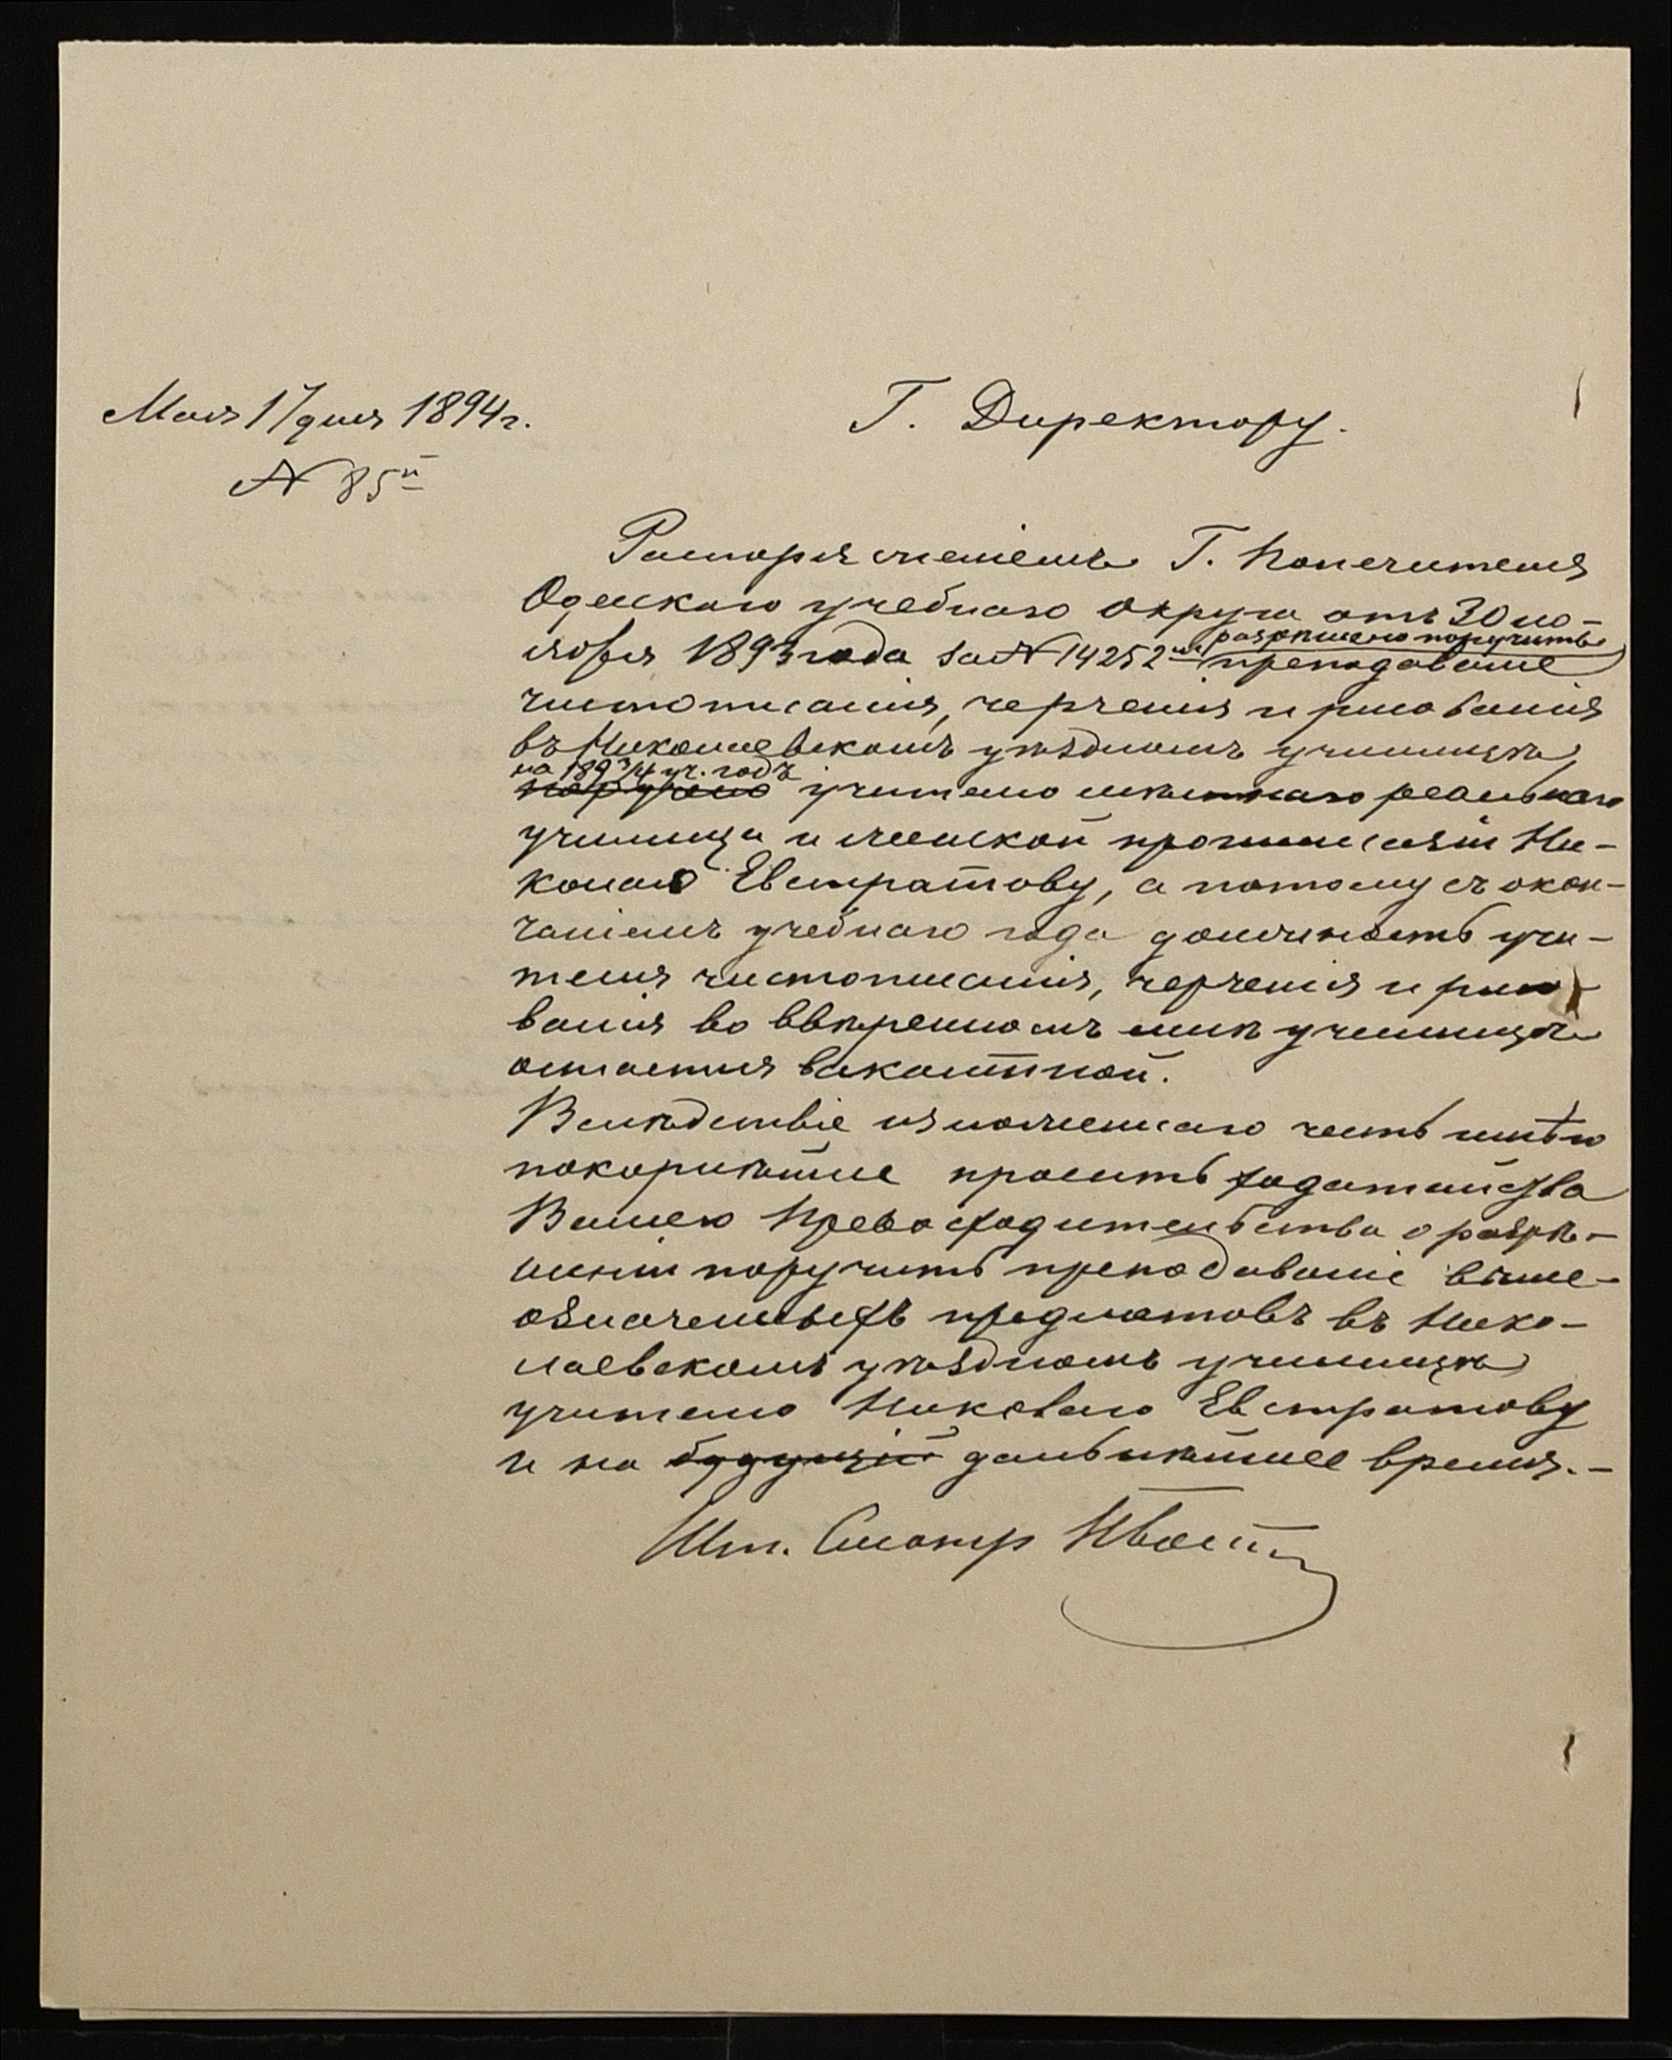 Мая 17 дня 1894 г.
№ 85й
Г. Директору.
Распоряженіемъ Г. Попечителя
Одесскаго учебнаго округа отъ 30 но-
разрѣшено поручить
ября 1893 года за № 14252 преподаваніе
чистописанія, черченія и рисованія
въ Николаевскомъ уѣздномъ училищѣ
на 1893/4 уч. годъ
поручено учителю мѣстнаго реальнаго
училища и женской прогимназіи Ни-
колаю Евстратову, а потому съ окон-
чаніемъ учебнаго года должность учи-
теля чистописанія, черченія и рисо-
ванія во ввѣренномъ мнѣ училищѣ
остается вакантной.
Вслѣдствіе изложеннаго честь имѣю
покорнѣйше просить ходатайства
Вашего Превосходительства о разрѣ-
шеніи поручить преподаваніе выше-
означенныхъ предметовъ въ Нико-
лаевскомъ уѣздномъ училищѣ
учителю Николаю Евстратову
и на будущій дальнѣйшее время.-
Шт. Смотр